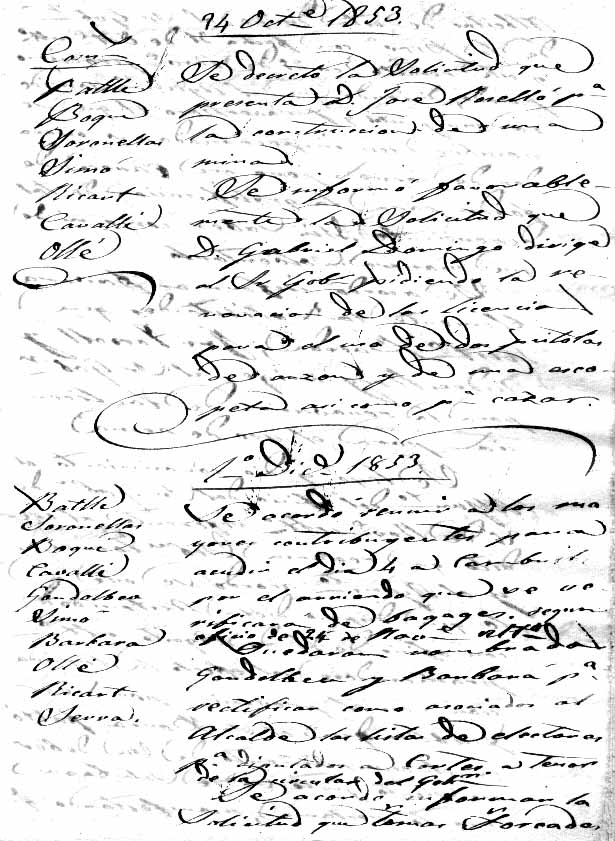 24 Octe 1853.
Batlle
Roque
Soronellas
Simó
Ricart
Cavallé
Ollé
Se decretó la Solicitud que
presenta D. José Roselló pa
la construccion de una
mina
Se informó favorable-
mente la Solicitud que
D. Gabriel Domingo dirige
al Sr Gobr pidiendo la re-
novacion de las licencia
para el uso de dos pistolas
de arzon y de una esco
peta asi como pa cazar.
1o Dice 1853.
Batlle
Soronellas
Roque
Cavallé
Gondolbeu
Simó
Barbara
Ollé
Ricart
Serra.
Se acordó reunir a los ma
yores contribuyentes para
acudir el dia 4 a
por el arriendo que se ve
rificara de bagages, segun
oficio de 24 de Nove
Quedaron nombrados
Gondolbeu y Barbará pa
rectificar como asociados al
Alcalde las listas de electores
pa diputados a Cortes a tenor
de la circular del Gobno
Se acordó informar la
Solicitud que Tomas Forcades